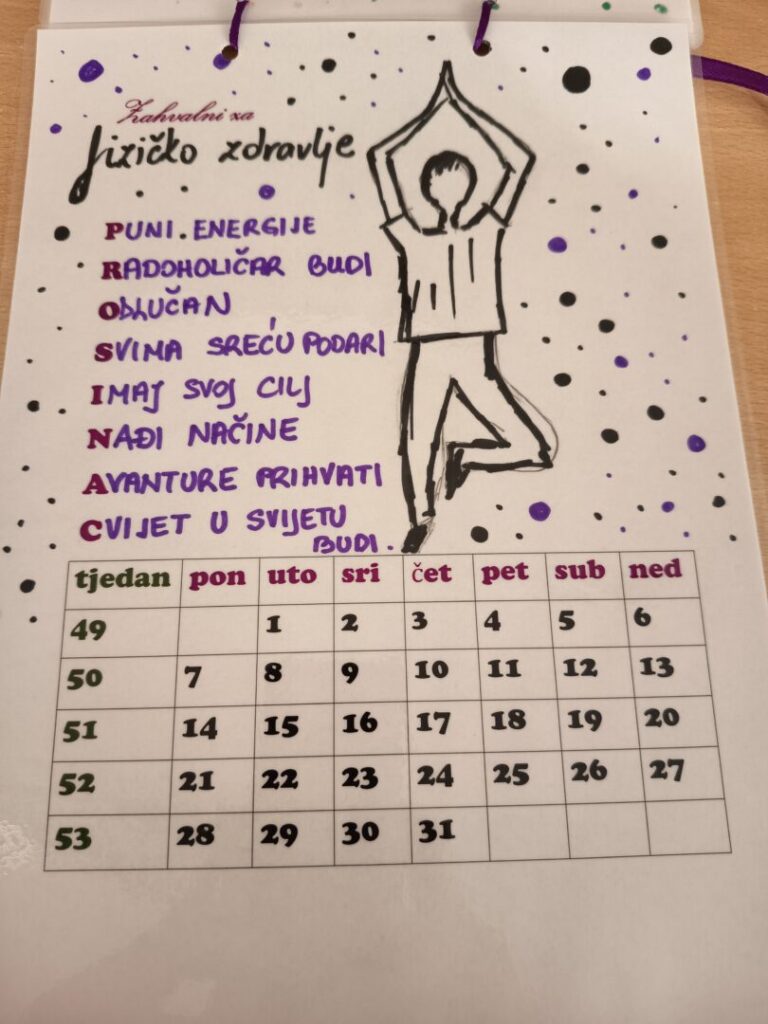 Zahvalni za
fizičko zdravlje
PUNI.ENERGIJE
RADOHOLIČAR BUDI
ODLUČAN
SVIMA SREĆU PODARI
IMAJ SVOJ CILJ
NAĐI NAČINE
AVANTURE PRIHVATI
CVIJET U SVIJETU
BUDI.
tjedan pon uto sri čet pet sub ned
49 1 2 3 4 5 6
50 7 8 9 10 11 12 13
51 14 15 16 17 18 19 20
52 21 22 23 24 25 26 27
53 28 29 30 31